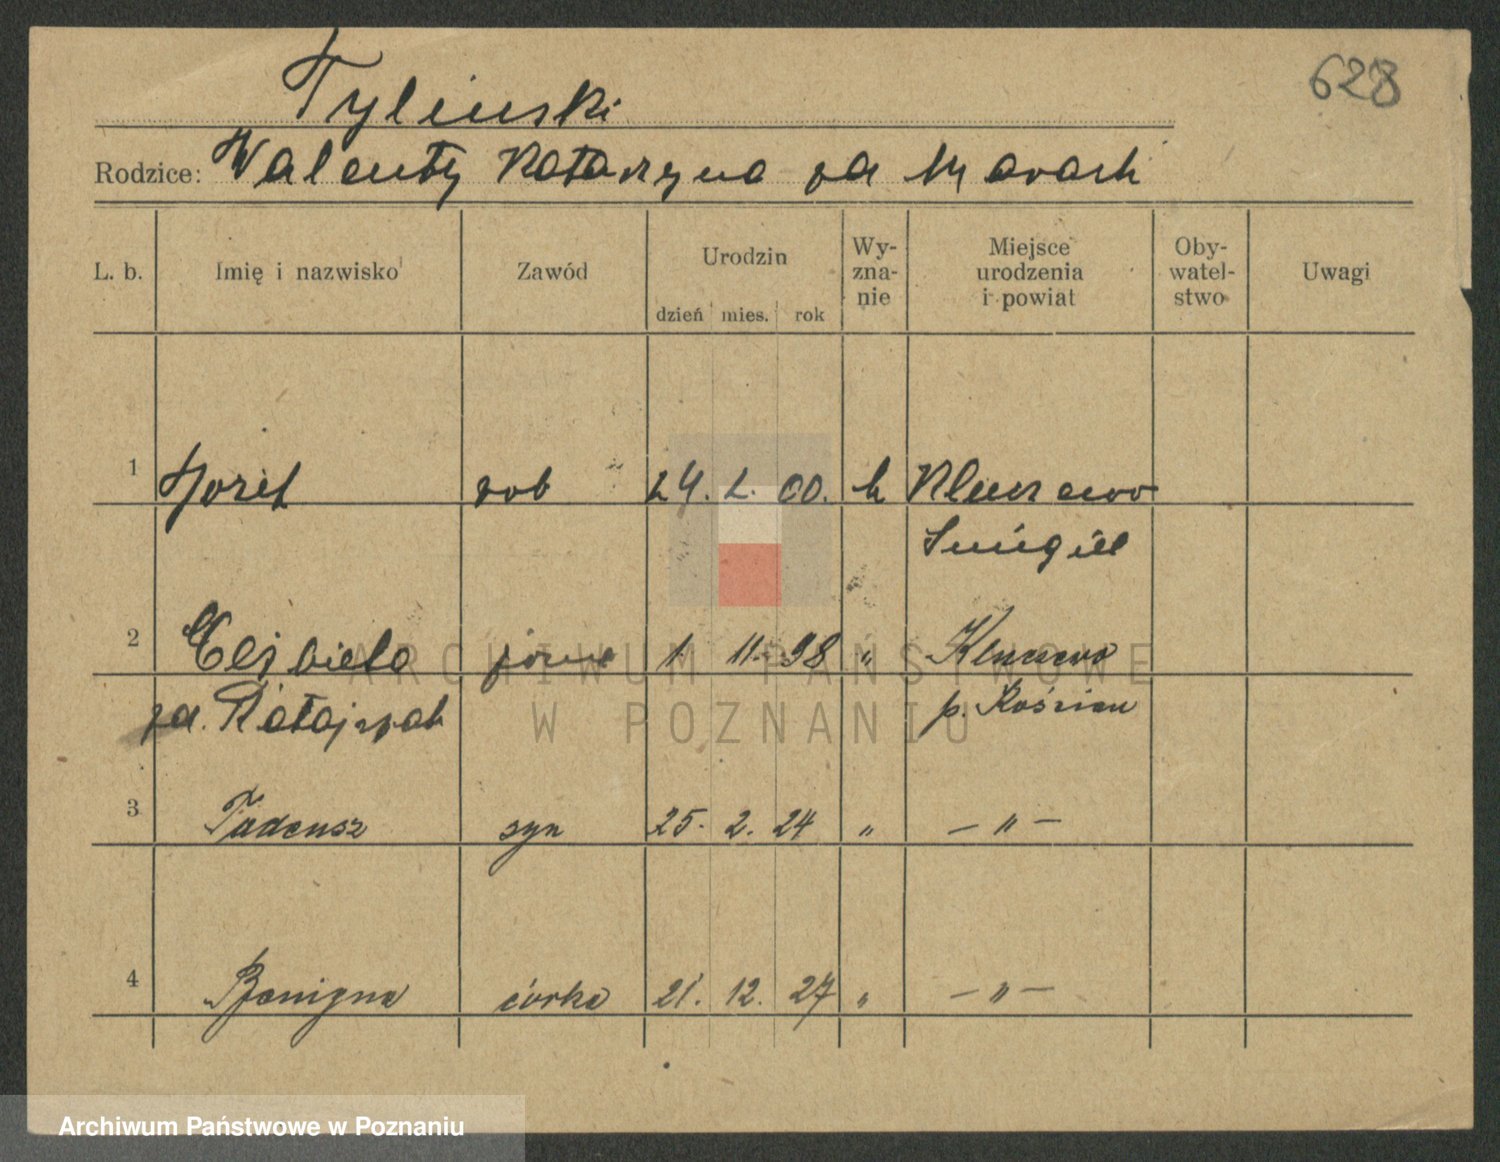 628
Tylinski
Rodzice: Walenty Katarzyna
L. b. Imię i nazwisko Zawód Urodzin dzień mies. rok Wy-zna-nie Miejsce urodzenia i powiat Oby-watel-stwo Uwagi
1 Józef rob 24. 2. 00. k Kluczewo
Śmigiel
2 Elżbieta żona 1. 11. 98 " Kluczewo
za. Ratajczak p. Kościan
3 Tadeusz syn 25. 2. 24 " — " —
4 Benigna córka 21. 12. 27 " — " —
ARCHIWUM PAŃSTWOWE
W POZNANIU
Archiwum Państwowe w Poznaniu